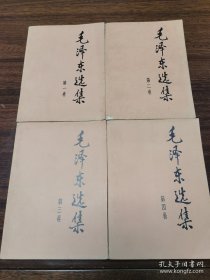 毛泽东选集
第一卷
毛泽东选集
第二卷
毛泽东选集
第三卷
毛泽东选集
第四卷